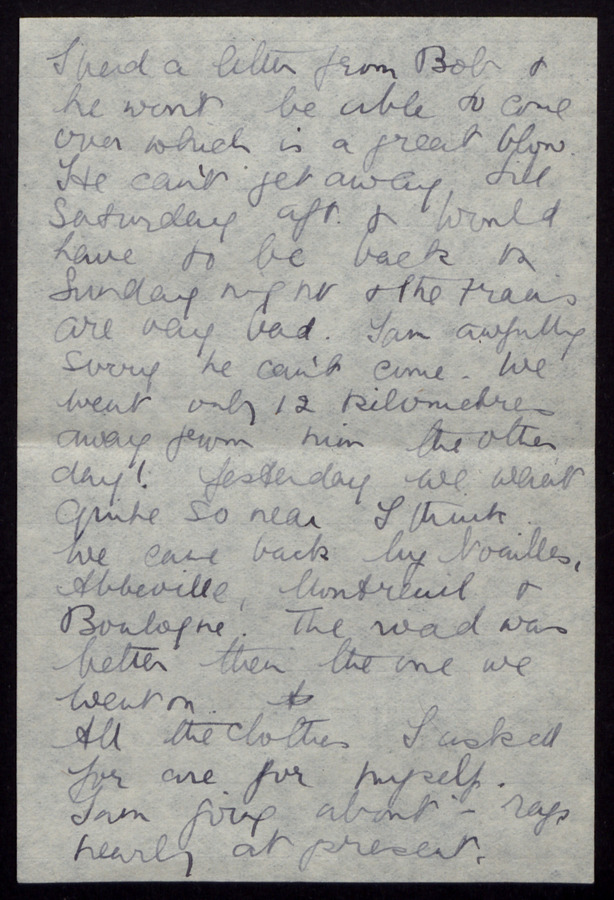 I had a letter from Bob &
he won't be able to come
over which is a great blow.
He can't get away till
Saturday aft. & would
have to be back on
Sunday night & the trains
are very bad. I am awfully
sorry he can't come. We
went only 12 kilometres
away from him the other
day! Yesterday we
quite so near I think.
We came back by Noailles,
Abbeville, Montreuil &
Boulogne. The road was
better then the one we
went on.
All the clothes I asked
for are for myself.
I am going about in rags
nearly at present.